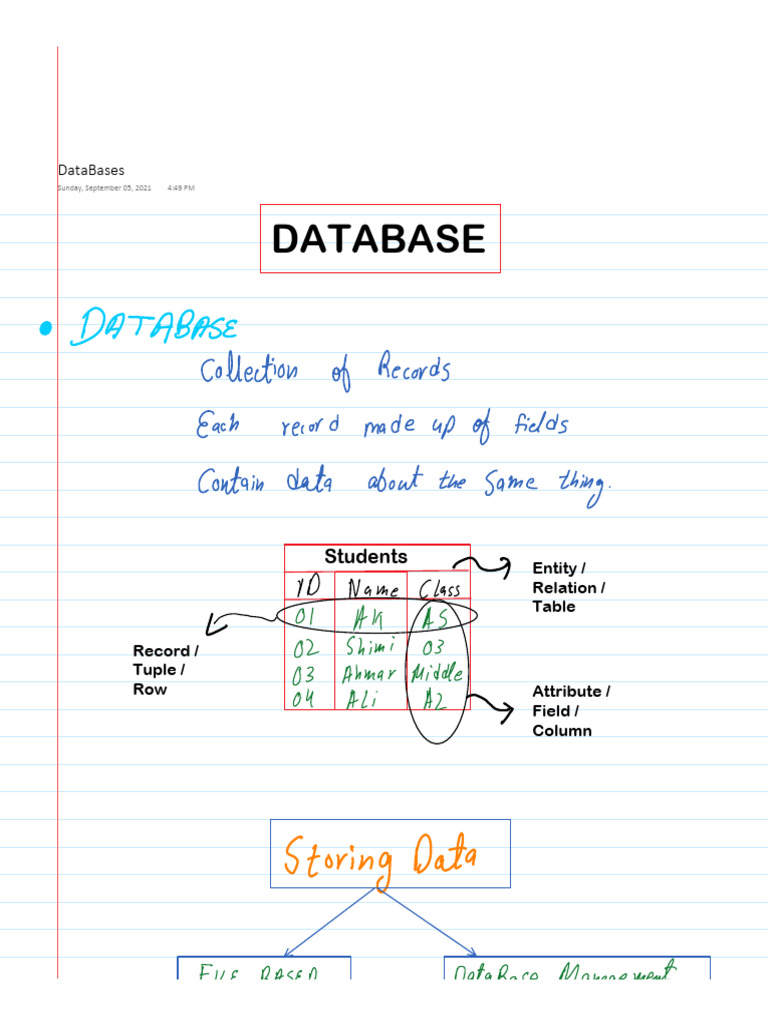 DataBases
Sunday, September 05, 2021 4:49 PM
DATABASE
• DATABASE
Collection of Records
Each record made up of fields
Contain data about the same thing.
Students
ID Name Class
01 AK AS
02 Shimi 03
03 Ahmar Middle
04 Ali A2
Entity /
Relation /
Table
Record /
Tuple /
Row
Attribute /
Field /
Column
Storing Data
FILE BASED
DataBase Management